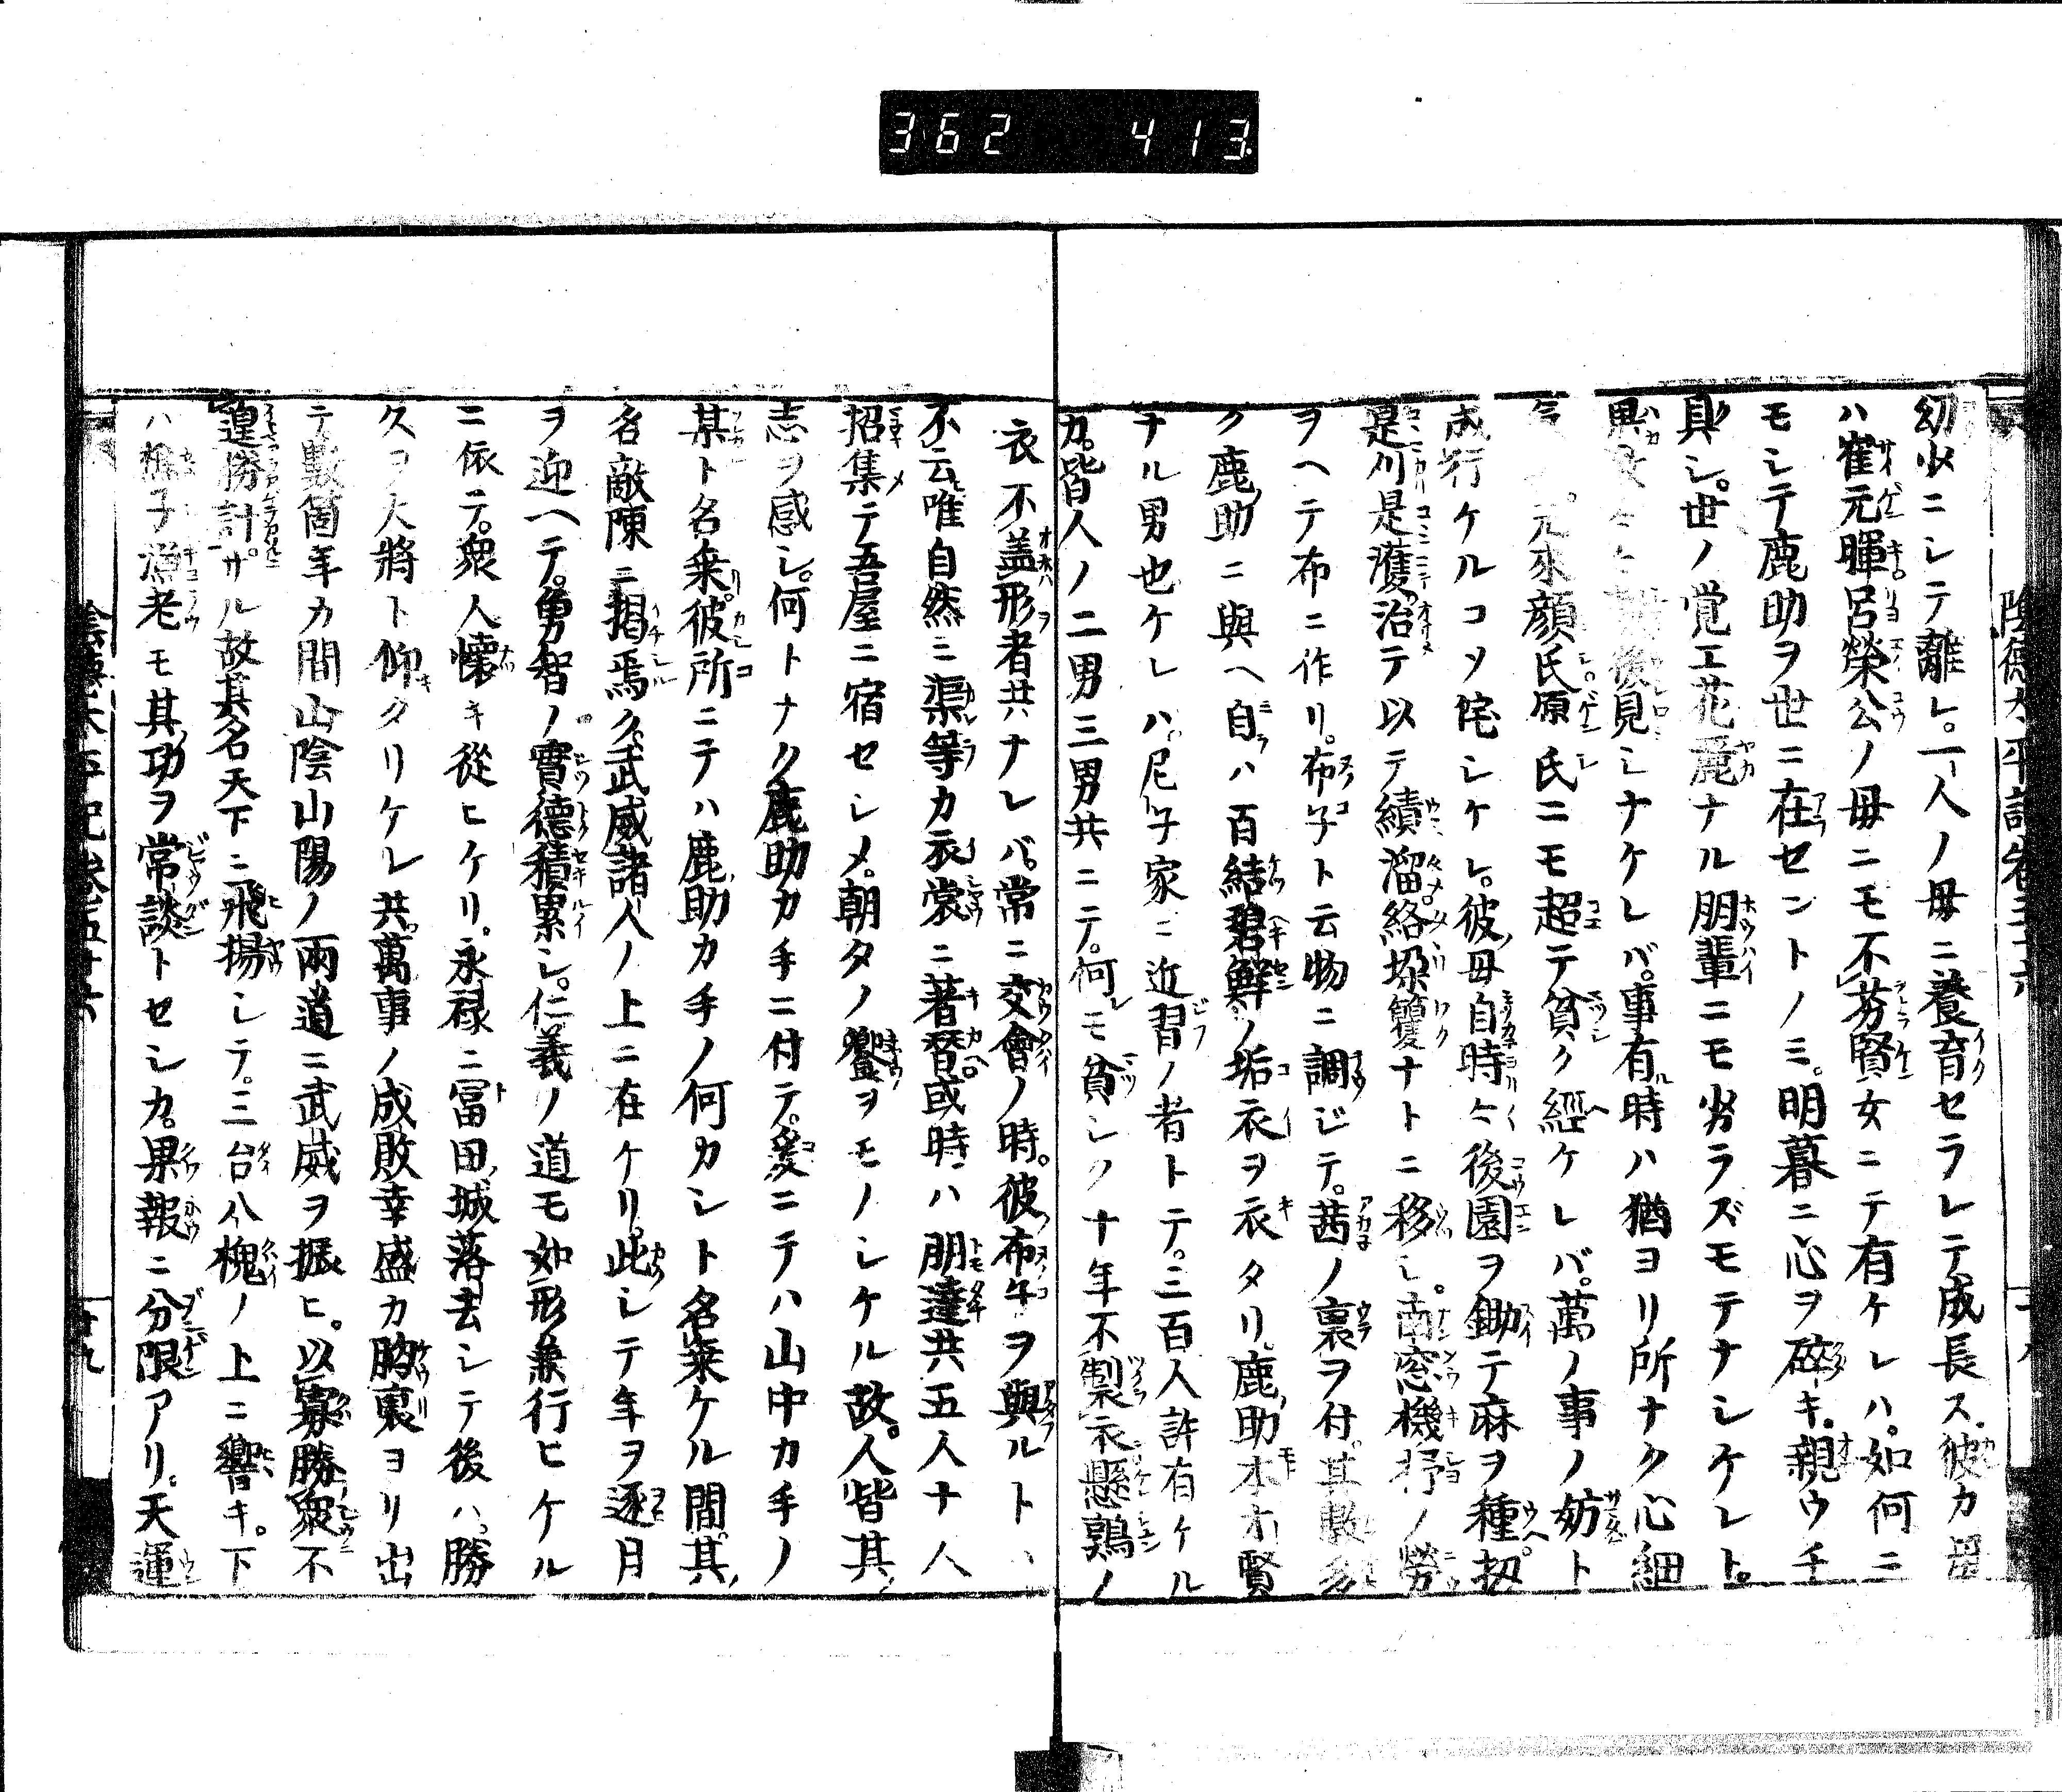 362 413
幼少ニシテ離レ。一人ノ母ニ養育セラレテ成長ス。彼カ母
ハ崔元暉。呂榮公ノ母ニモ不劣賢女ニテ有ケレハ。如何ニ
モシテ鹿助ヲ世ニ在セントノミ。明暮ニ心ヲ碎キ。親ウチ
具シ。世ノ覚エ花麗ナル朋輩ニモ劣ラズモテナシケレト。
後見シナケレバ。事有時ハ猶ヨリ所ナク心細
元來顔氏原氏ニモ超テ貧ク經ケレバ。萬ノ事ノ妨ト
成行ケルコソ侘シケレ。彼母自時々後園ヲ鋤テ麻ヲ種。
是刈是濩。治テ以テ績溜。絡垜籰ナトニ移シ。南窓機杼ノ勞
ヲヘテ布ニ作リ。布子ト云物ニ調ジテ。茜ノ裏ヲ付。其數多
ク鹿助ニ與ヘ自ハ百結碧鮮ノ垢衣ヲ衣タリ。鹿助本ヨリ賢
ナル男也ケレハ。尼子家ニ近習ノ者トテ。三百人許有ケル
カ。皆人ノ二男三男共ニテ。何モ貧シク十年不製衣懸鶉ノ
衣不盖形者共ナレバ。常ニ交會ノ時。彼布子ヲ與ルトハ
不云唯自然ニ渠等カ衣裳ニ著替。或時ハ朋達共五人十人
招集テ吾屋ニ宿セシメ。朝夕ノ饗ヲモノシケル故。人皆其
志ヲ感シ。何トナク鹿助カ手ニ付テ。爰ニテハ山中カ手ノ
某ト名乗。彼所ニテハ鹿助カ手ノ何カシト名乗ケル間。其
名敵陳ニ掲焉ク。武威諸人ノ上ニ在ケリ。此シテ年ヲ逐月
ヲ迎ヘテ。勇智ノ實德積累シ。仁義ノ道モ如形兼行ヒケル
ニ依テ。衆人懐キ從ヒケリ。永禄ニ冨田城落去シテ後ハ。勝
久ヲ大將ト仰タリケレ共。萬事ノ成敗幸盛カ胸裏ヨリ出
テ數箇年カ間山陰山陽ノ兩道ニ武威ヲ振ヒ。以寡勝衆不
遑勝計。サル故其名天下ニ飛揚シテ。三台八槐ノ上ニ響キ。下
ハ樵子漁老モ其功ヲ常談トセシカ。果報ニ分限アリ。天運